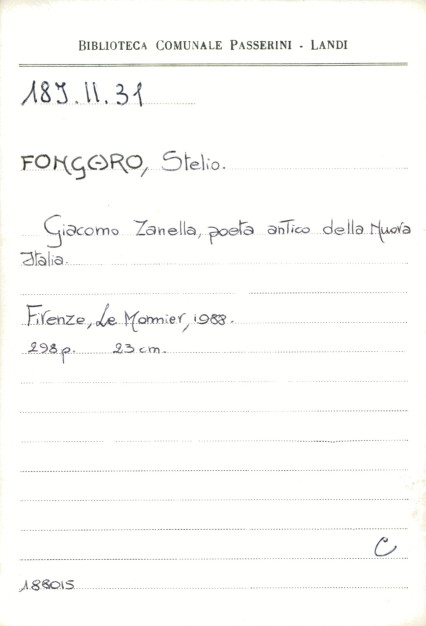 BIBLIOTECA COMUNALE PASSERINI - LANDI
18J.II.31
FONGARO, Stelio.
Giacomo Zanella, poeta antico della Nuova
Italia.
Firenze, Le Monnier, 1988.
298 p. 23 cm.
C
188015